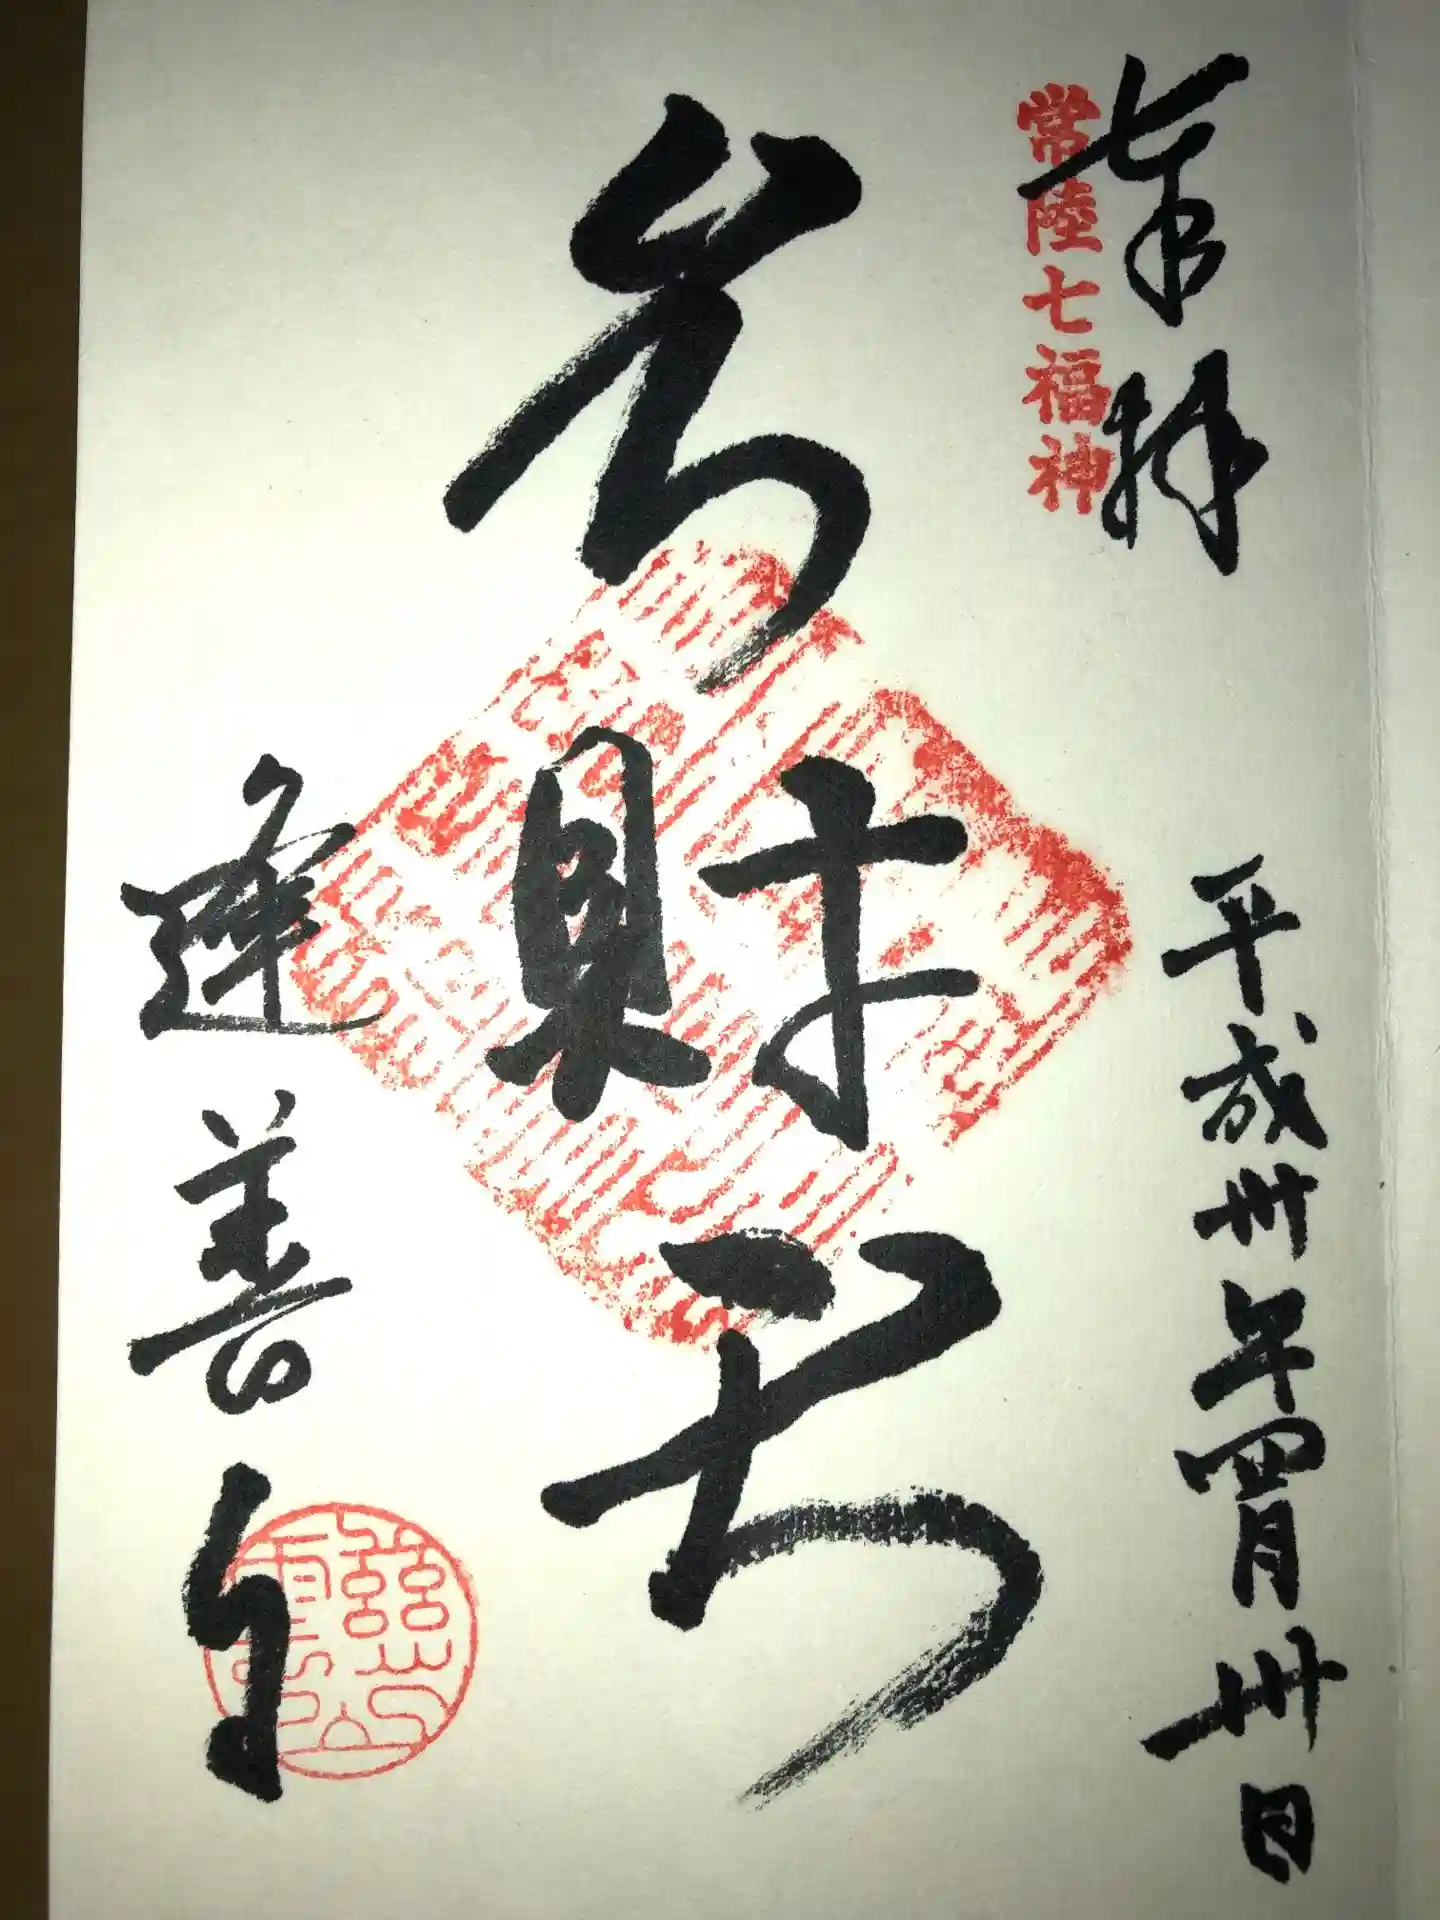 奉拝
平成卅年四月卅日
常陸七福神
弁財天
逢善寺